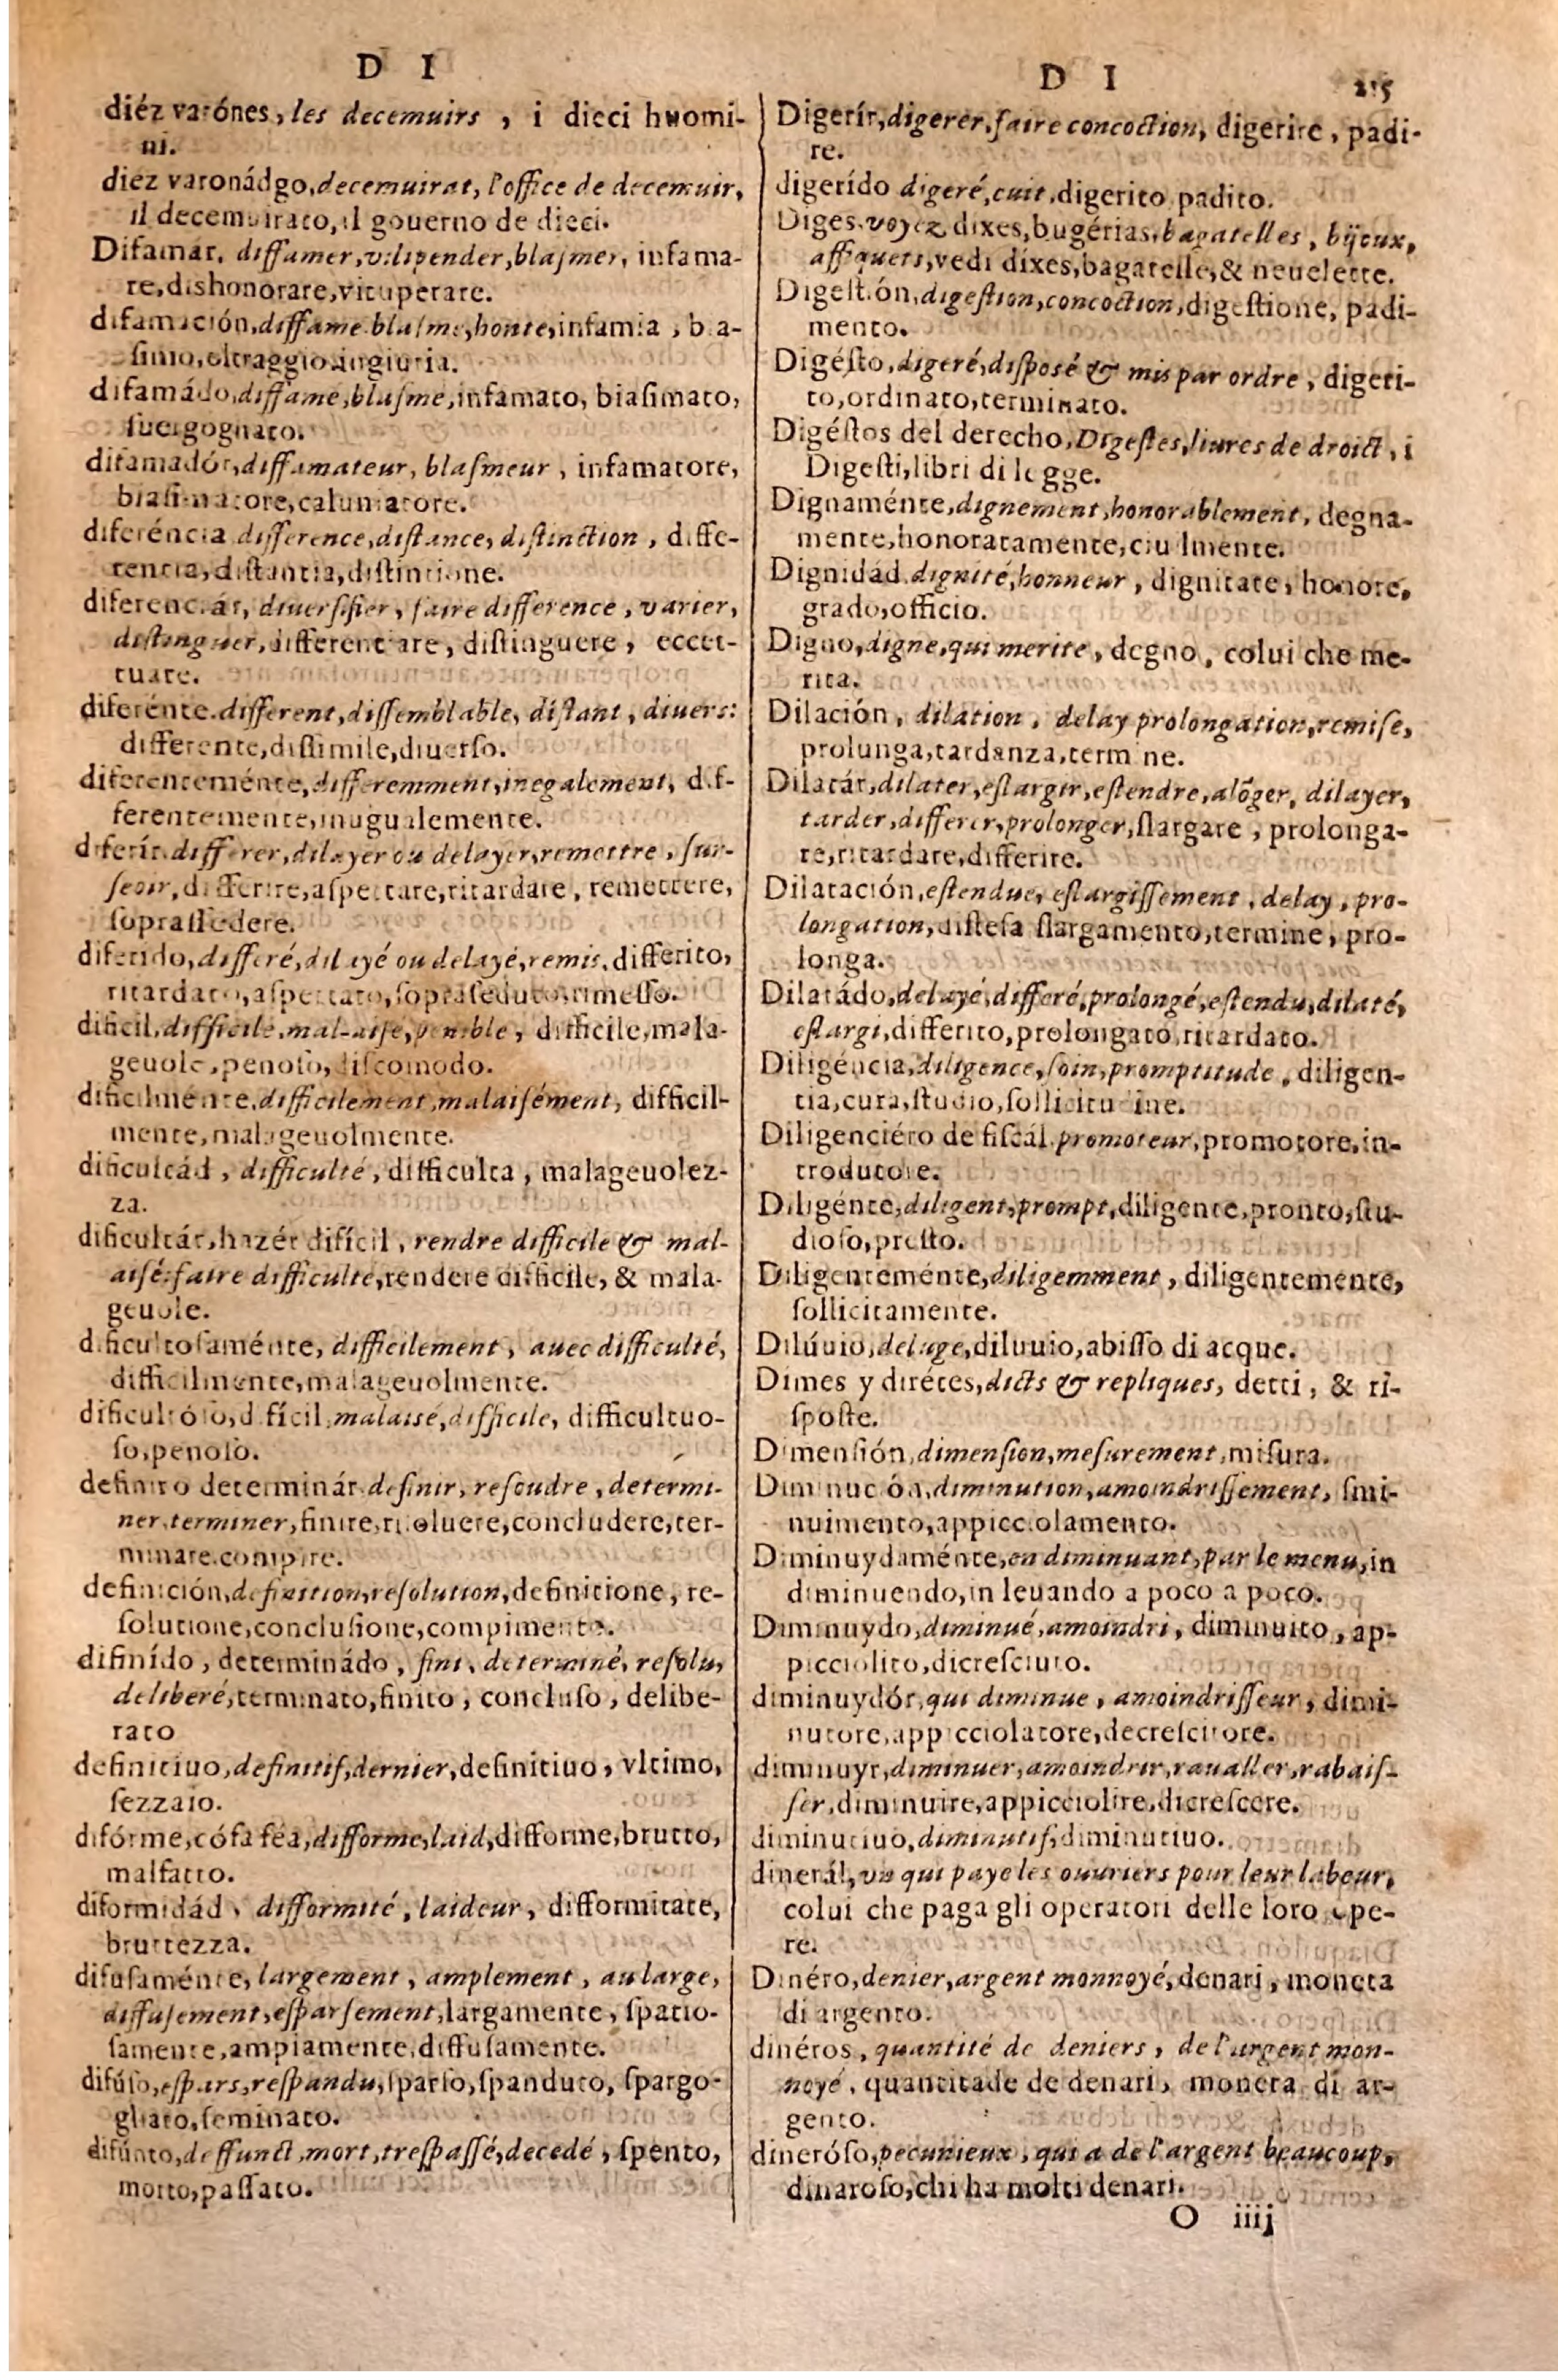 D I
diéz varónes, les decemuirs, i dieci huomi-
ni.
diez varonádgo, decemuirat, l'office de decemuir,
il decemuirato, il gouerno de dieci.
Difamár, diffamer, vilipender, blaſmer, infama-
re, dishonorare, vituperare.
difamación, diffame blaſme, honte, infamia, bia-
ſimo, oltraggio, ingiuria.
difamádo, diffamé, blaſmé, infamato, biaſimato,
ſuergognato.
difamadór, diffamateur, blaſmeur, infamatore,
biaſimatore, caluniatore.
diferéncia difference, diſtance, diſtinction, diffe-
rentia, diſtantia, diſtintione.
diferenciár, diuerſifier, faire difference, varier,
diſtinguer, differentiare, diſtinguere, eccet-
tuare.
diferénte. different, diſſemblable, diſtant, diuers:
differente, diſſimile, diuerſo.
diferenteménte, differemment, inegalement, dif-
ferentemente, inugualemente.
diferír. differer, dilayer ou delayer, remettre, ſur-
ſeoir, differire, aſpettare, ritardare, remettere,
ſopraſſedere.
diferído, differé, dilayé ou delayé, remis, differito,
ritardato, aſpettato, ſopraſeduto, rimeſſo.
dificil, difficile, mal-aiſé, penible, difficile, mala-
geuole, penoſo, diſcomodo.
dificilménte, difficilement, malaiſément, difficil-
mente, malageuolmente.
dificultád, difficulté, difficulta, malageuolez-
za.
dificultár, hazér difícil, rendre difficile & mal-
aiſé: faire difficulté, rendere difficile, & mala-
geuole.
dificultoſaménte, difficilement, auec difficulté,
difficilmente, malageuolmente.
dificultóſo, difícil, malaisé, difficile, difficultuo-
ſo, penoſo.
definiro determinár definir, reſoudre, determi-
ner, terminer, finire, riſoluere, concludere, ter-
minare. compire.
definición, definition, reſolution, definitione, re-
ſolutione, concluſione, compimento.
difinído, determinádo, fini, determiné, reſolu,
deliberé, terminato, finito, concluſo, delibe-
rato
definitiuo, definitif, dernier, definitiuo, vltimo,
ſezzaio.
difórme, cóſa féa, difforme, laid, difforme, brutto,
malfatto.
diformidád, difformité, laideur, difformitate,
bruttezza.
difuſaménte, largement, amplement, au large,
diffuſement, eſparſement, largamente, ſpatio-
ſamente, ampiamente, diffuſamente.
difúſo, eſpars, reſpandu, ſparſo, ſpanduto, ſpargo-
gliato, ſeminato.
difúnto, deffunct, mort, treſpaſſé, decedé, ſpento,
morto, paſſato.
D I 215
Digerír, digerer, faire concoction, digerire, padi-
re.
digerído digeré, cuit, digerito padito.
Diges. voyez dixes, bugérias, bagatelles, bijoux,
affiquets, vedi dixes, bagatelle, & neuelette.
Digeſtión, digeſtion, concoction, digeſtione, padi-
mento.
Digéſto, digeré, diſpoſé & mis par ordre, digeri-
to, ordinato, terminato.
Digéſtos del derecho, Digeſtes, liures de droict, i
Digeſti, libri di legge.
Dignaménte, dignement, honorablement, degna-
mente, honoratamente, ciuilmente.
Dignidád. dignité, honneur, dignitate, honore,
grado, officio.
Digno, digne, qui merite, degno, colui che me-
rita.
Dilación, dilation, delay prolongation, remiſe,
prolunga, tardanza, termine.
Dilatár, dilater, eſlargir, eſtendre, alõger, dilayer,
tarder, differer, prolonger, ſlargare, prolonga-
re, ritardare, differire.
Dilatación, eſtendue, eſlargiſſement, delay, pro-
longation, diſteſa ſlargamento, termine, pro-
longa.
Dilatádo, delayé, differé, prolongé, eſtendu, dilaté,
eſlargi, differito, prolongato, ritardato.
Diligéncia, diligence, ſoin, promptitude, diligen-
tia, cura, ſtudio, ſollicitudine.
Diligenciéro de fiſcál. promoteur, promotore, in-
troductore.
Diligénte, diligent, prompt, diligente, pronto, ſtu-
dioſo, preſto.
Diligenteménte, diligemment, diligentemente,
ſollicitamente.
Dilúuio, deluge, diluuio, abiſſo di acque.
Dimes y diréces, dicts & repliques, detti, & ri-
ſpoſte.
Dimenſión, dimenſion, meſurement, miſura.
Diminución, diminution, amoindriſſement, ſmi-
nuimento, appicciolamento.
Diminuydaménte, en diminuant, par le menu, in
diminuendo, in leuando a poco a poco.
Diminuydo, diminué, amoindri, diminuito, ap-
picciolito, dicreſciuto.
diminuydór, qui diminue, amoindriſſeur, dimi-
nutore, appicciolatore, decreſcitore.
diminuyr, diminuer, amoindrir, raualler, rabaiſ-
ſer, diminuire, appicciolire, dicreſcere.
diminutiuo, diminutif, diminutiuo.
dinerál, vn qui paye les ouuriers pour leur labeur,
colui che paga gli operatori delle loro ope-
re.
Dinéro, denier, argent monnoyé, denari, moneta
di argento.
dinéros, quantité de deniers, de l'argent mon-
noyé, quantitade de denari, moneta di ar-
gento.
dineróſo, pecunieux, qui a de l'argent beaucoup,
dinaroſo, chi ha molti denari.
O iiij